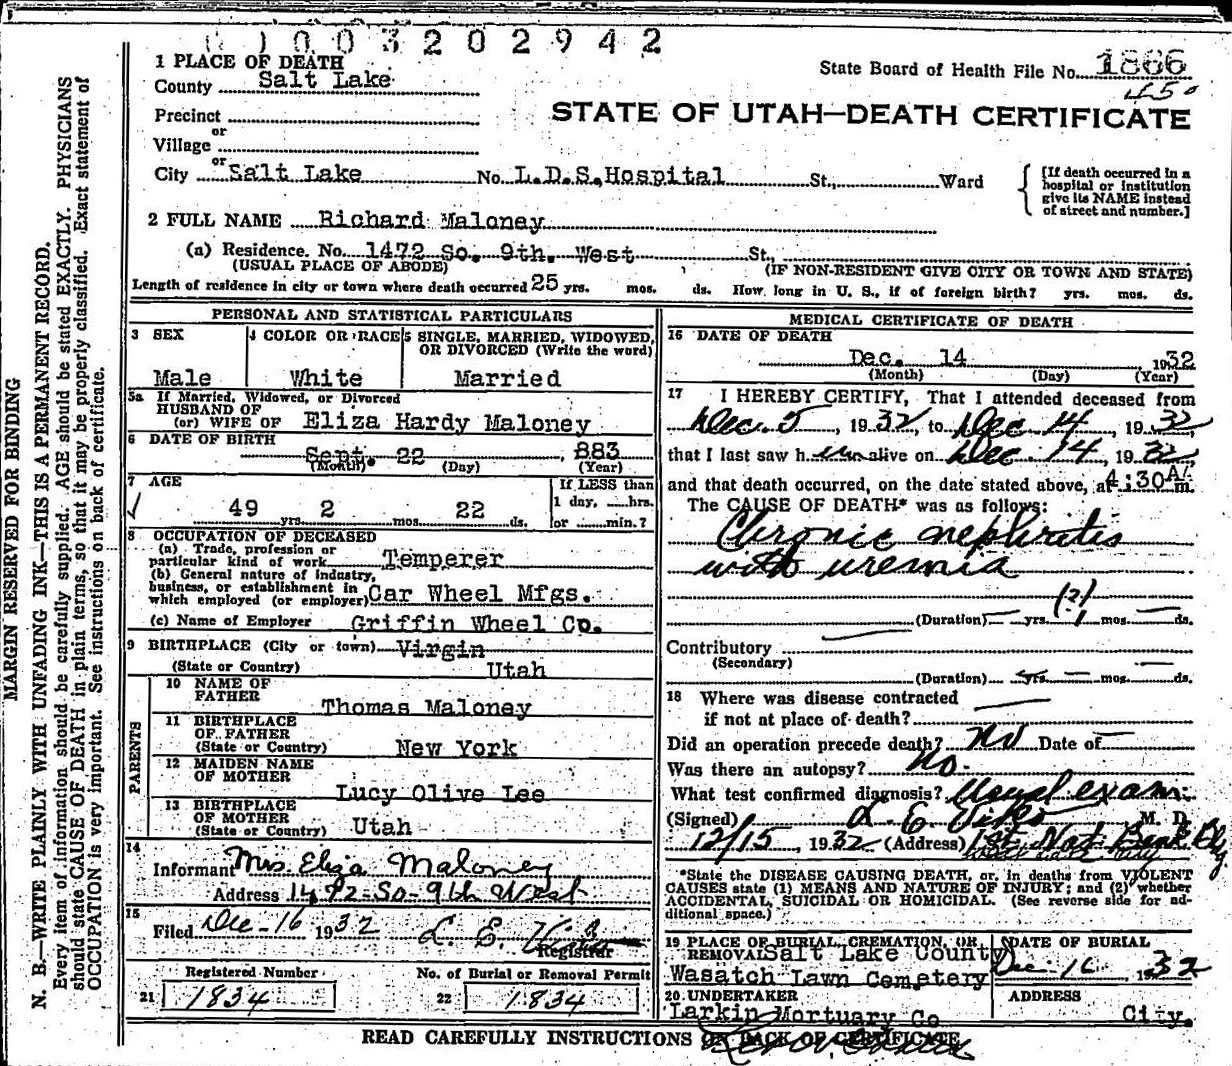 1003202942
1 PLACE OF DEATH
County Salt Lake
State Board of Health File No. 1866
450
Precinct
or
Village
or
City Salt Lake No. L.D.S. Hospital St., Ward
STATE OF UTAH—DEATH CERTIFICATE
[If death occurred in a hospital or institution give its NAME instead of street and number.]
2 FULL NAME Richard Maloney
(a) Residence. No. 1472 So. 9th. West St.,
(USUAL PLACE OF ABODE) (IF NON-RESIDENT GIVE CITY OR TOWN AND STATE)
Length of residence in city or town where death occurred 25 yrs. mos. ds. How long in U. S., if of foreign birth? yrs. mos. ds.
PERSONAL AND STATISTICAL PARTICULARS
3 SEX
Male
4 COLOR OR RACE
White
5 SINGLE, MARRIED, WIDOWED, OR DIVORCED (Write the word)
Married
5a If Married, Widowed, or Divorced
HUSBAND OF
(or) WIFE OF Eliza Hardy Maloney
6 DATE OF BIRTH
Sept. 22, 883
(Month) (Day) (Year)
7 AGE
49 yrs. 2 mos. 22 ds.
If LESS than
1 day, hrs.
or min.?
8 OCCUPATION OF DECEASED
(a) Trade, profession or
particular kind of work Temperer
(b) General nature of industry,
business, or establishment in
which employed (or employer) Car Wheel Mfgs.
(c) Name of Employer Griffin Wheel Co.
9 BIRTHPLACE (City or town) Virgin
(State or Country) Utah
PARENTS
10 NAME OF
FATHER Thomas Maloney
11 BIRTHPLACE
OF FATHER
(State or Country) New York
12 MAIDEN NAME
OF MOTHER
Lucy Olive Lee
13 BIRTHPLACE
OF MOTHER
(State or Country) Utah
14
Informant Mrs. Eliza Maloney
Address 1472-So-9th West
15
Filed Dec-16 1932 L. E.
Registrar
Registered Number
21 1834
No. of Burial or Removal Permit
22 1834
MEDICAL CERTIFICATE OF DEATH
16 DATE OF DEATH
Dec. 14 1932
(Month) (Day) (Year)
17 I HEREBY CERTIFY, That I attended deceased from
Dec. 5, 1932, to Dec 14, 1932,
that I last saw him alive on Dec. 14, 1932,
and that death occurred, on the date stated above, at 4:30 A m.
The CAUSE OF DEATH* was as follows:
Chronic nephritis
with uremia
(Duration) — yrs. (?) mos. — ds.
Contributory
(Secondary)
(Duration) — yrs. — mos. — ds.
18 Where was disease contracted
if not at place of death?
Did an operation precede death? No Date of —
Was there an autopsy? No.
What test confirmed diagnosis? Usual exam.
(Signed) L. E. Viko M. D.
12/15, 1932 (Address) 1st Nat Bank Bldg.
*State the DISEASE CAUSING DEATH, or, in deaths from VIOLENT
CAUSES state (1) MEANS AND NATURE OF INJURY; and (2) whether
ACCIDENTAL, SUICIDAL OR HOMICIDAL. (See reverse side for ad-
ditional space.)
19 PLACE OF BURIAL, CREMATION, OR
REMOVAL Salt Lake County
Wasatch Lawn Cemetery
DATE OF BURIAL
Dec. 16 1932
20 UNDERTAKER
Larkin Mortuary Co
ADDRESS
City.
READ CAREFULLY INSTRUCTIONS ON BACK OF CERTIFICATE
MARGIN RESERVED FOR BINDING
N. B.—WRITE PLAINLY WITH UNFADING INK—THIS IS A PERMANENT RECORD.
Every item of information should be carefully supplied. AGE should be stated EXACTLY. PHYSICIANS
should state CAUSE OF DEATH in plain terms, so that it may be properly classified. Exact statement of
OCCUPATION is very important. See instructions on back of certificate.